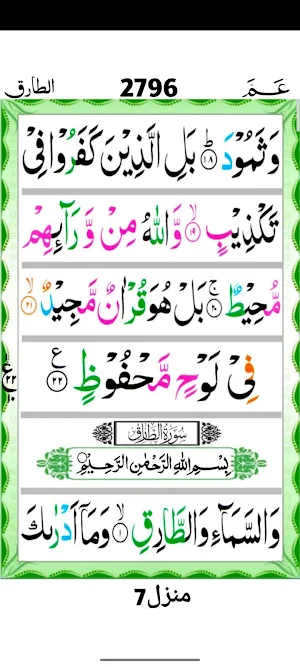 الطارق 2796 عَـمَّ
وَ ثَمُوْدَ ۱۸ بَلِ الَّذِیْنَ كَفَرُوْا فِیْ
تَكْذِیْبٍ ۱۹ وَّ اللّٰهُ مِنْ وَّرَآىِٕهِمْ
مُّحِیْطٌ ۲۰ بَلْ هُوَ قُرْاٰنٌ مَّجِیْدٌ ۲۱
فِیْ لَوْحٍ مَّحْفُوْظٍ ۲۲ ع
سُوْرَةُ الطَّارِقِ
بِسْمِ اللّٰهِ الرَّحْمٰنِ الرَّحِیْمِ
وَ السَّمَآءِ وَ الطَّارِقِ ۱ وَ مَاۤ اَدْرٰىكَ
منزل7